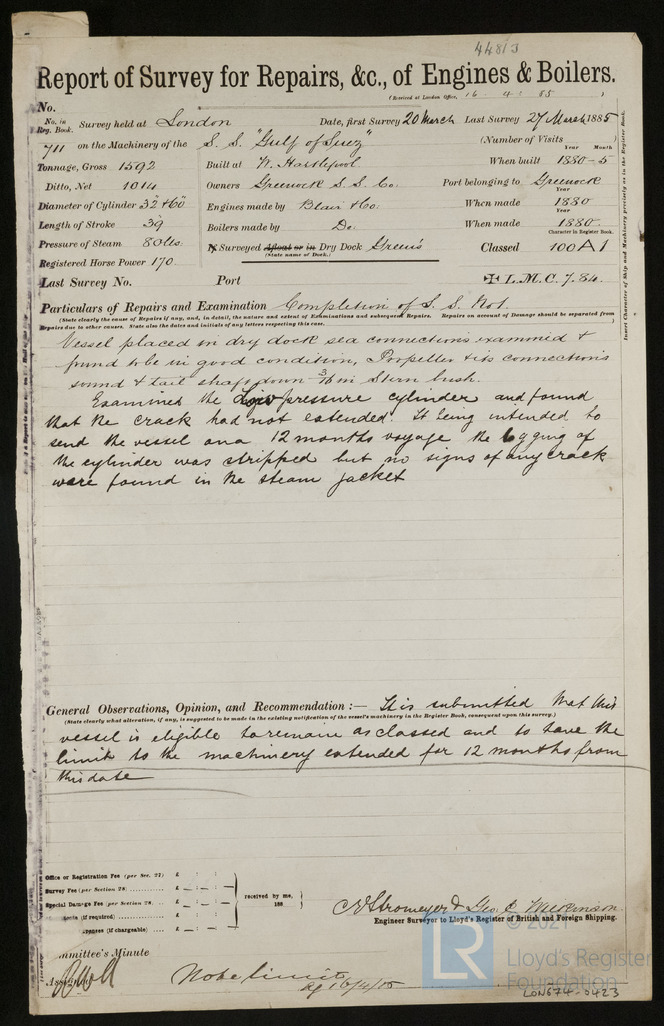 44813
Report of Survey for Repairs, &c., of Engines & Boilers.
(Received at London Office, 16 - 4 - 85 )
No.
No. in Reg. Book. Survey held at London Date, first Survey 20 March Last Survey 27 March 1885
711 on the Machinery of the S. S. "Gulf of Suez" (Number of Visits
Year Month
Tonnage, Gross 1592 Built at W. Hartlepool When built 1880-5
Ditto, Net 1014 Owners Greenock S. S. Co. Port belonging to Greenock
Year
Diameter of Cylinder 32 & 60 Engines made by Blair & Co. When made 1880
Year
Length of Stroke 39 Boilers made by Do. When made 1880
Character in Register Book.
Pressure of Steam 80 lbs. If Surveyed Afloat or in Dry Dock Green's Classed 100 A 1
(State name of Dock.)
Registered Horse Power 170
Last Survey No. Port ✠ L.M.C. 7.84.
Insert Character of Ship and Machinery precisely as in the Register Book.
Particulars of Repairs and Examination Completion of S. S. No 1.
(State clearly the cause of Repairs if any, and, in detail, the nature and extent of Examinations and subsequent Repairs. Repairs on account of Damage should be separated from
Repairs due to other causes. State also the dates and initials of any letters respecting this case. )
Vessel placed in dry dock sea connections examined &
found to be in good condition, Propeller & its connections
sound & tail shaft down 3/16 in Stern bush.
Examined the Low pressure cylinder and found
that the crack had not extended. It being intended to
send the vessel on a 12 months voyage the lagging of
the cylinder was stripped but no signs of any crack
were found in the steam jacket
General Observations, Opinion, and Recommendation :— It is submitted that this
(State clearly what alteration, if any, is suggested to be made in the existing notification of the vessel's machinery in the Register Book, consequent upon this survey.)
vessel is eligible to remain as classed and to have the
limit to the machinery extended for 12 months from
this date
Office or Registration Fee (per Sec. 27) £ : :
Survey Fee (per Section 28) £ : :
Special Damage Fee (per Section 28. £ : :
(if required) £ : :
(if chargeable) £ : :
received by me,
188
C E Stromeyer & Geo. C. Wilkinson
Engineer Surveyor to Lloyd's Register of British and Foreign Shipping.
mmittee's Minute
Note limit
16/4/85
LR
© 2021
Lloyd's Register
Foundation
LON674-0423